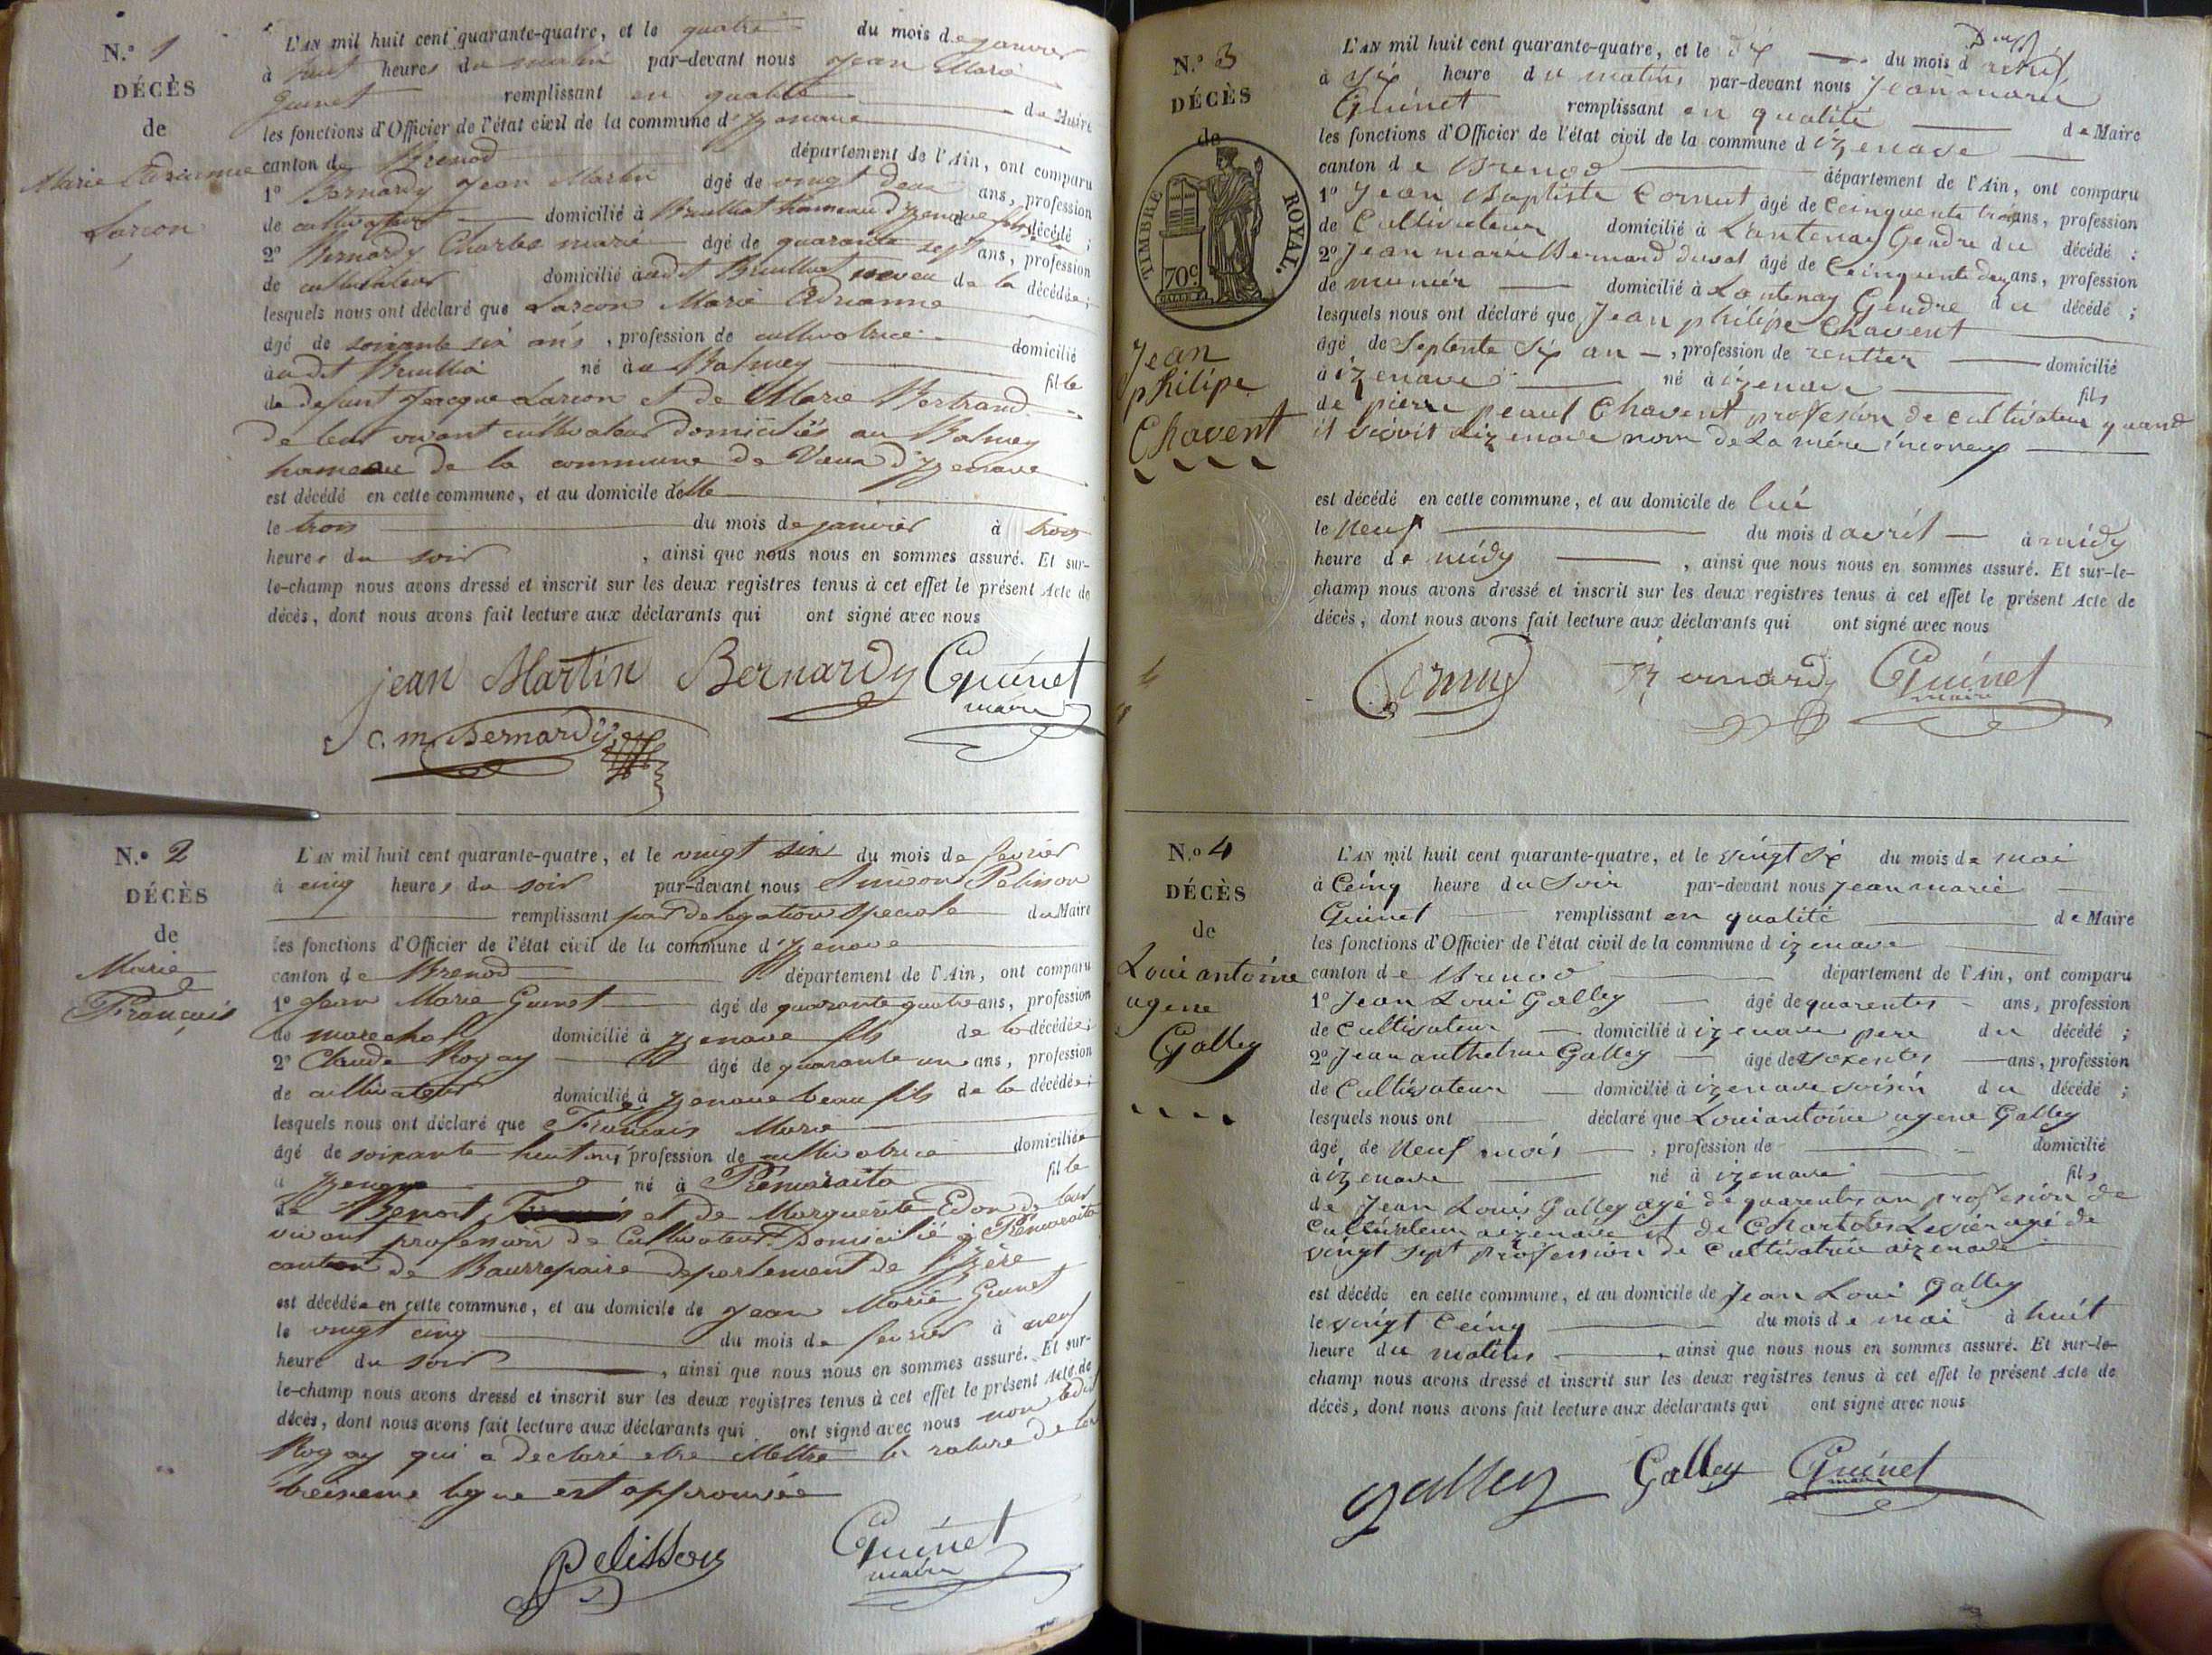 N.º 1
DÉCÈS
de
Marie Adrianne
Larcon
L'AN mil huit cent quarante-quatre, et le quatre du mois de janvier
à huit heures du matin par-devant nous Jean Marie
Guinet remplissant en qualité de Maire
les fonctions d'Officier de l'état civil de la commune d'Izenave
canton de Brenod département de l'Ain, ont comparu
1º Bernardy Jean Martin âgé de vingt deux ans, profession
de cultivateur domicilié à Brulliat hameau d'yzenave décédé ;
2º Bernardy Charles marie âgé de quarante sept ans, profession
de cultivateur domicilié audit Brulliat neveu de la décédée ;
lesquels nous ont déclaré que Larcon Marie Adrianne
âgé de soixante six ans, profession de cultivatrice domicilié
audit né au Balmey fille
de defunt Jacque Larcon et de Marie Bertrand
de leur vivant cultivateur domiciliés au Balmey
hameau de la commune de Vieux d'yzenave
est décédé en cette commune, et au domicile delle
le trois du mois de janvier à trois
heures du soir, ainsi que nous nous en sommes assuré. Et sur-
le-champ nous avons dressé et inscrit sur les deux registres tenus à cet effet le présent Acte de
décès, dont nous avons fait lecture aux déclarants qui ont signé avec nous
jean Martin Bernardy Guinet
maire
c. m. Bernardy
N.º 2
DÉCÈS
de
Marie
Francais
L'AN mil huit cent quarante-quatre, et le vingt six du mois de fevrier
à cinq heures du soir par-devant nous Simeon Pelisson
remplissant par delegation speciale du Maire
les fonctions d'Officier de l'état civil de la commune d'yzenave
canton de Brenod département de l'Ain, ont comparu
1º Jean Marie Guinet âgé de quarante quatre ans, profession
de marechal domicilié à yzenave fils de la décédée ;
2º Claude Rogay âgé de quarante un ans, profession
de cultivateur domicilié à yzenave beau fils de la décédée ;
lesquels nous ont déclaré que Francais Marie
âgé de soixante huit ans, profession de cultivatrice domiciliée
à yzenave né à fille
de Benoit et de Marguerite Edon de leur
vivant profession de Cultivateur Domicilié à
canton de Baurrepaire departement de l'yzère
est décédée en cette commune, et au domicile de Jean Marie Guinet
le vingt cinq du mois de fevrier à neuf
heure du soir, ainsi que nous nous en sommes assuré. Et sur-
le-champ nous avons dressé et inscrit sur les deux registres tenus à cet effet le présent Acte de
décès, dont nous avons fait lecture aux déclarants qui ont signé avec nous non ledit
Rogay qui a declaré etre illettre la rature de la
treizieme ligne est approuvée
Pelisson Guinet
maire
N.º 3
DÉCÈS
de
TIMBRE ROYAL.
70c
Jean
philipe
Chavent
L'AN mil huit cent quarante-quatre, et le dix du mois d avril
à dix heure du matins par-devant nous Jean marie
Guinet remplissant en qualité de Maire
les fonctions d'Officier de l'état civil de la commune d izenave
canton de Brenod département de l'Ain, ont comparu
1º Jean Baptiste Cornut âgé de Ceinquente trois ans, profession
de Cultivateur domicilié à Lantenay Gendre du décédé ;
2º Jean marie Bernard duval âgé de Ceinquente deux ans, profession
de munier domicilié à Lantenay Gendre du décédé ;
lesquels nous ont déclaré que Jean philipe Chavent
âgé de Septente Six an, profession de rentier domicilié
à izenave né à izenave fils
de pierre peaul Chavent profesion de cultivateur quand
il vivoit aizenave nom de La mére inconeu
est décédé en cette commune, et au domicile de lui
le Neuf du mois d avril à midy
heure de midy, ainsi que nous nous en sommes assuré. Et sur-le-
champ nous avons dressé et inscrit sur les deux registres tenus à cet effet le présent Acte de
décès, dont nous avons fait lecture aux déclarants qui ont signé avec nous
Cornud Bernardy Guinet
maire
N.º 4
DÉCÈS
de
Loui antoine
ugene
Galley
L'AN mil huit cent quarante-quatre, et le vingt Six du mois de mai
à Ceinq heure du Soir par-devant nous Jean marie
Guinet remplissant en qualité de Maire
les fonctions d'Officier de l'état civil de la commune d izenave
canton de Brenod département de l'Ain, ont comparu
1º Jean Loui Galley âgé de quarentes ans, profession
de Cultivateur domicilié à izenave pere du décédé ;
2º Jean anthelme Galley âgé de soxentes ans, profession
de Cultivateur domicilié à izenave voisin du décédé ;
lesquels nous ont déclaré que Loui antoine ugene Galley
âgé de Neuf mois, profession de domicilié
à izenave né à izenave fils
de Jean Louis Galley agé de quarentes an profesion de
Cultivateur aizenave et de agé de
vingt sept profession de Cultivatrice aizenave
est décédé en cette commune, et au domicile de Jean Loui Galley
le vingt Ceinq du mois de mai à huit
heure du matins, ainsi que nous nous en sommes assuré. Et sur-le-
champ nous avons dressé et inscrit sur les deux registres tenus à cet effet le présent Acte de
décès, dont nous avons fait lecture aux déclarants qui ont signé avec nous
galley Galley Guinet
maire